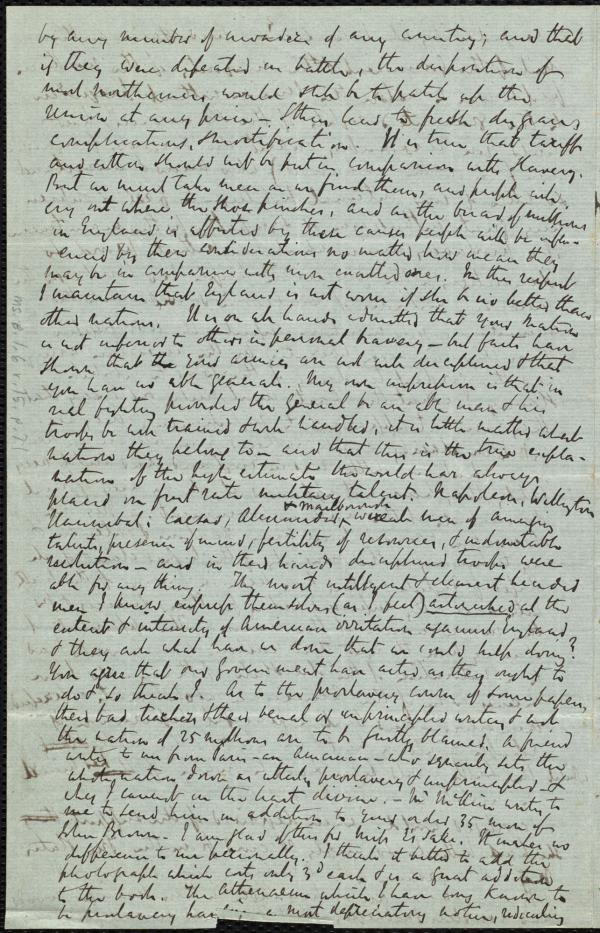 by any number of invaders of any country; and that
if they were defeated in battle, the disposition of
most northerners would still be to patch up the
Union at any price – & thus lead to fresh disgrace,
complications, & mortification. It is true that tariffs
and cotton should not be put in comparison with Slavery.
But we must take men as we find them, and people will
cry out where the shoe pinches, and as the bread of millions
in England is affected by these causes people will be influ-
enced by these considerations no matter how mean they
may be in comparison with more exalted ones. In this respect
I maintain that England is not worse if she be no better than
other nations. It is on all hands admitted that your Nation
is not inferior to others in personal bravery – but facts have
shown that the your armies are not well disciplined & that
you have no able generals. My own impression is that in
real fighting provided the General be an able man & his
troops be well trained & well handled, it is little matter what
nation they belong to – and that this is the true expla-
nation of the high estimate the world has always
placed on first rate military talent. Napoleon, Wellington
& Marlborough
Hannibal, Caesar, Alexander, were all men of amazing
talent, presence of mind, fertility of resources, & indomitable
resolution – and in their hands disciplined troops were
able for any thing. The most intelligent & clearest headed
men I know express themselves (as I feel) astonished at the
extent & intensity of American irritation against England
& they ask what have we done that we could help doing?
You agree that our Government have acted as they ought to
do & so thinks I. As to the proslavery course of some papers,
their bad teachers & their venal or unprincipled writers
the nation of 25 millions are to be justly blamed. A friend
writes to me from Paris – an American – who sets the
whole nation down as utterly proslavery & unprincipled – &
why I cannot in the least divine. – writes to
me to send him in addition to your order 35 more of
John Brown. I am glad of this for Miss Estlake. It makes no
difference to me personally. I think it better to add the
photograph which costs only 3d each & is a great addition
to the book. The Athenaeum which I have long known to
be proslavery has a most depreciatory notice, ridiculing
Ms. B.1.6 v.15, p.71